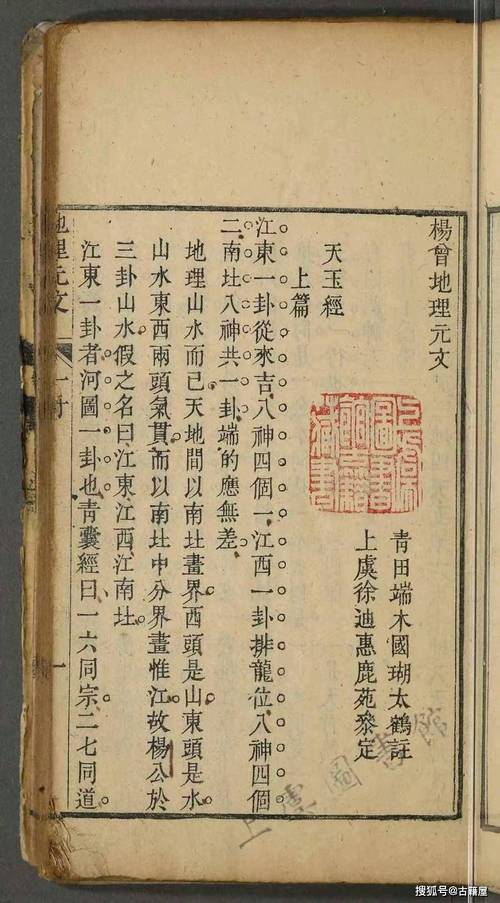 楊曾地理元文
青田端木國瑚太鶴註
上虞徐迪惠鹿苑叅定
天玉經
上篇
江東一卦從來吉八神四個一江西一卦排龍位八神四個
二南北八神共一卦端的應無差
地理山水而已天地間以南北畫界西頭是山東頭是水
山水東西兩頭氣貫而以南北中分界畫惟江故楊公於
三卦山水假之名曰江東江西江南北
江東一卦者河圖一卦也青囊經曰一六同宗二七同道
地理元文
一
上虞圖書館
搜狐号@古籍屋